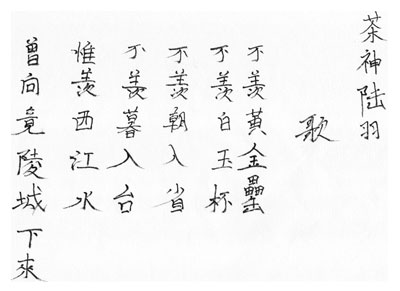 茶神陆羽
歌
不羡黄金罍
不羡白玉杯
不羡朝入省
不羡暮入台
惟羡西江水
曾向竟陵城下來